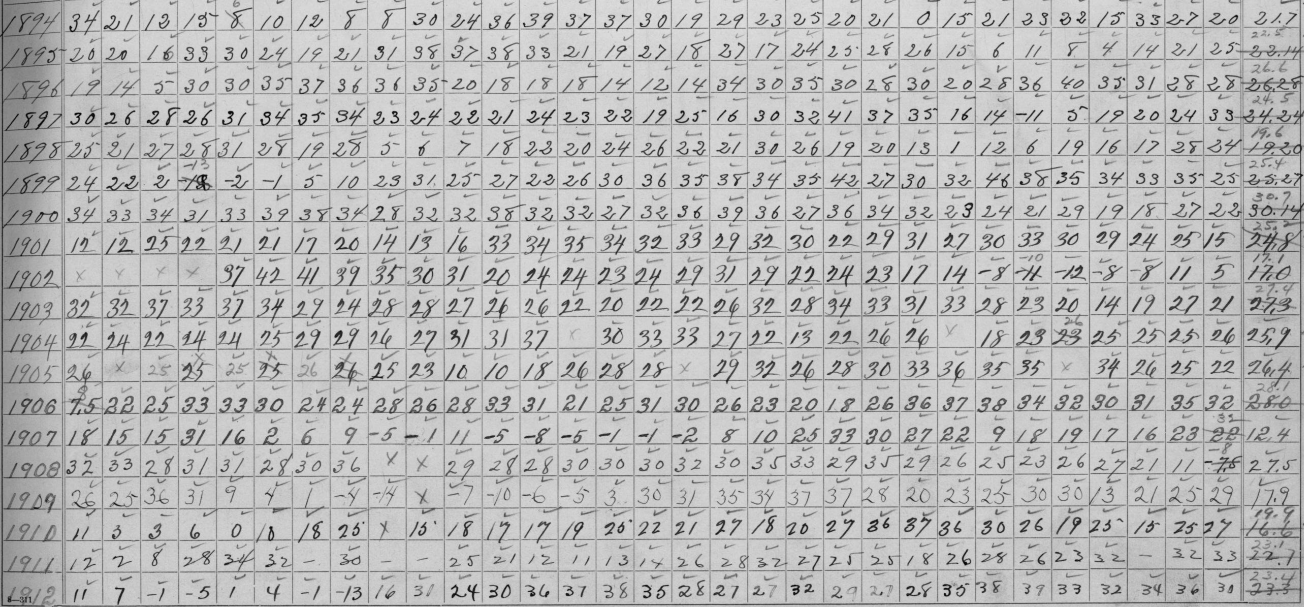 1894 34 21 12 15 8 10 12 8 8 30 24 36 39 37 37 30 19 29 23 25 20 21 0 15 21 23 22 15 33 27 20 21.7
22.5
1895 20 20 16 33 30 24 19 21 31 38 37 38 33 21 19 27 18 27 17 24 25 28 26 15 6 11 8 4 14 21 25 22.14
26.6
1896 19 14 5 30 30 35 37 36 36 35 20 18 18 18 14 12 14 34 30 35 30 28 30 20 28 36 40 35 31 28 28 26.28
24.5
1897 30 26 28 26 31 34 35 34 23 24 22 21 24 23 22 19 25 16 30 32 41 37 35 16 14 -11 5 19 20 24 33 24.24
19.6
1898 25 21 27 28 31 28 19 28 5 6 7 18 22 20 24 26 22 21 30 26 19 20 13 1 12 6 19 16 17 28 24 19.20
-13 25.4
1899 24 22 2 -18 -2 -1 5 10 23 31 25 27 22 26 30 36 35 38 34 35 42 27 30 32 46 38 35 34 33 35 25 25.27
30.7
1900 34 33 34 31 33 39 38 34 28 32 32 38 32 32 27 32 36 39 36 27 36 34 32 23 24 21 29 19 18 27 22 30.14
25.2
1901 12 12 25 22 21 21 17 20 14 13 16 33 34 35 34 32 33 29 32 30 22 29 31 27 30 33 30 29 24 25 15 24.8
-10 17.1
1902 x x x x 37 42 41 39 35 30 31 20 24 24 23 24 29 31 29 22 24 23 17 14 -8 -11 -12 -8 -8 11 5 17.0
27.4
1903 32 32 37 33 37 34 29 24 28 28 27 26 26 22 20 22 22 26 32 28 34 33 31 33 28 23 20 14 19 27 21 27.3
26
1904 22 24 22 24 24 25 29 29 26 27 31 31 37 x 30 33 33 27 22 13 22 26 26 x 18 23 23 25 25 25 26 25.9
x x x
1905 26 x 25 25 25 25 26 26 25 23 10 10 18 26 28 28 x 29 32 26 28 30 33 36 35 35 x 34 26 25 22 26.4
8 28.1
1906 7.5 22 25 33 33 30 24 24 28 26 28 33 31 21 25 31 30 26 23 20 18 26 36 37 38 34 32 30 31 35 32 28.0
1907 18 15 15 31 16 2 6 9 -5 -1 11 -5 -8 -5 -1 -1 -2 8 10 25 33 30 27 22 9 18 19 17 16 23 22 12.4
-8
1908 32 33 28 31 31 28 30 36 x x 29 28 28 30 30 30 32 30 35 33 29 35 29 26 25 23 26 27 21 11 -7.5 27.5
1909 26 25 36 31 9 4 1 -4 -14 x -7 -10 -6 -5 3 30 31 35 34 37 37 28 20 23 25 30 30 13 21 25 29 17.9
19.9
1910 11 3 3 6 0 10 18 25 x 15 18 17 17 19 25 22 21 27 18 20 27 36 37 36 30 26 19 25 15 25 27 16.6
23.1
1911 12 2 8 28 34 32 - 30 - - 25 21 12 11 13 14 26 28 32 27 25 25 18 26 28 26 23 32 - 32 33 22.7
23.4
1912 11 7 -1 -5 1 4 -1 -13 16 31 24 30 36 37 38 35 28 27 27 32 29 27 28 35 38 39 33 32 34 36 30